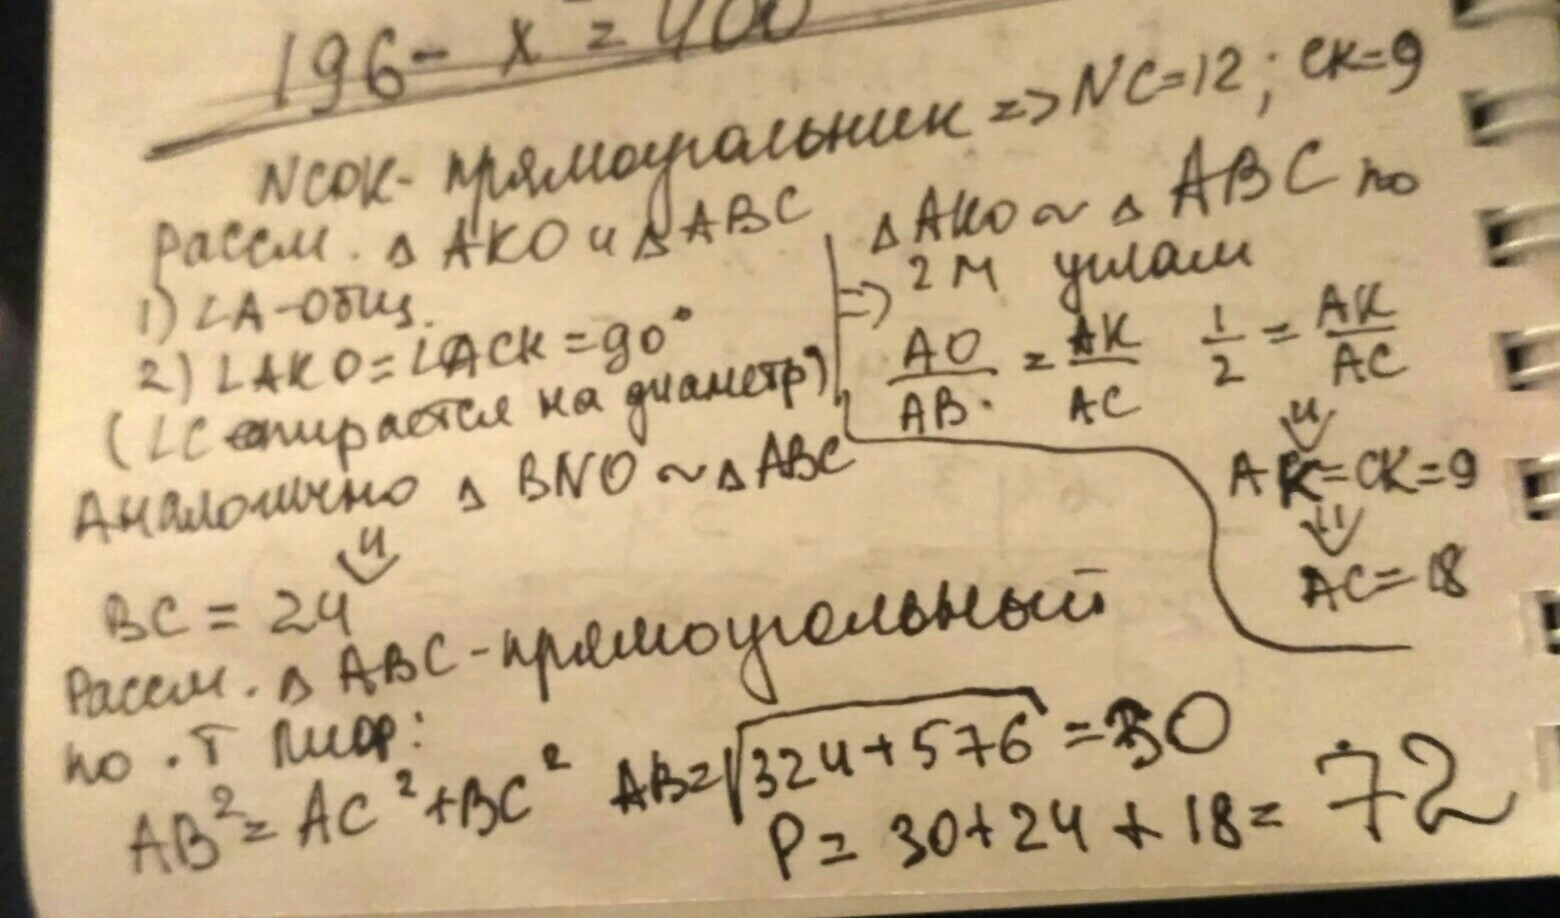 196 - x = 400
NCOK - прямоугольник => NC=12; CK=9
Рассм. △ AKO и △ ABC
1) ∠A - общ.
2) ∠AKO = ∠ACK = 90°
(∠C опирается на диаметр)
=> △ AKO ~ △ ABC по
2м углам
AO/AB = AK/AC 1/2 = AK/AC
⇓
AK = CK = 9
⇓
AC = 18
Аналогично △ BNO ~ △ ABC
⇓
BC = 24
Рассм. △ ABC - прямоугольный
по . Т Пифр:
AB² = AC² + BC² AB = √324+576 = 30
P = 30+24+18 = 72